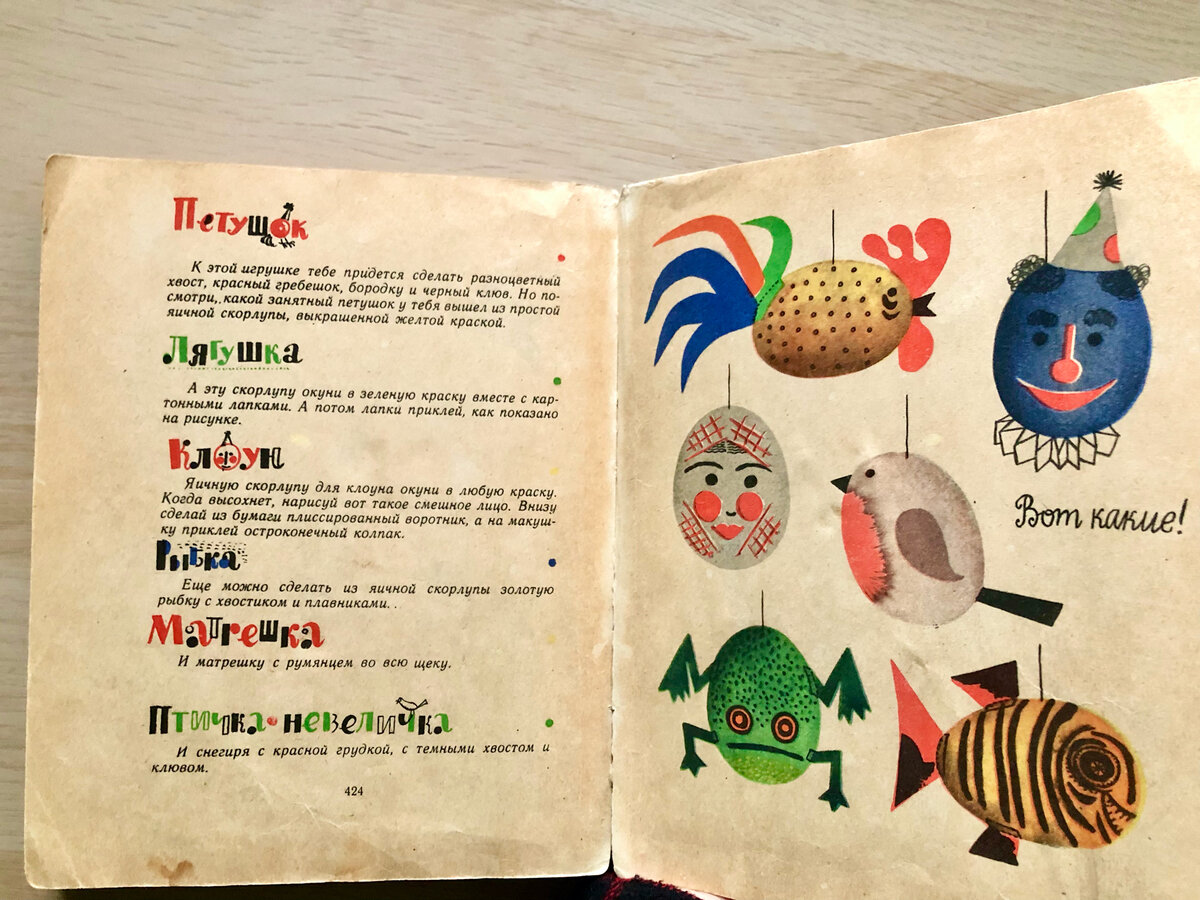 Петушок
К этой игрушке тебе придется сделать разноцветный
хвост, красный гребешок, бородку и черный клюв. Но по-
смотри, какой занятный петушок у тебя вышел из простой
яичной скорлупы, выкрашенной желтой краской.
Лягушка
А эту скорлупу окуни в зеленую краску вместе с кар-
тонными лапками. А потом лапки приклей, как показано
на рисунке.
Клоун
Яичную скорлупу для клоуна окуни в любую краску.
Когда высохнет, нарисуй вот такое смешное лицо. Внизу
сделай из бумаги плиссированный воротник, а на макуш-
ку приклей остроконечный колпак.
Рыбка
Еще можно сделать из яичной скорлупы золотую
рыбку с хвостиком и плавниками.
Матрешка
И матрешку с румянцем во всю щеку.
Птичка-невеличка
И снегиря с красной грудкой, с темными хвостом и
клювом.
424
Вот какие!